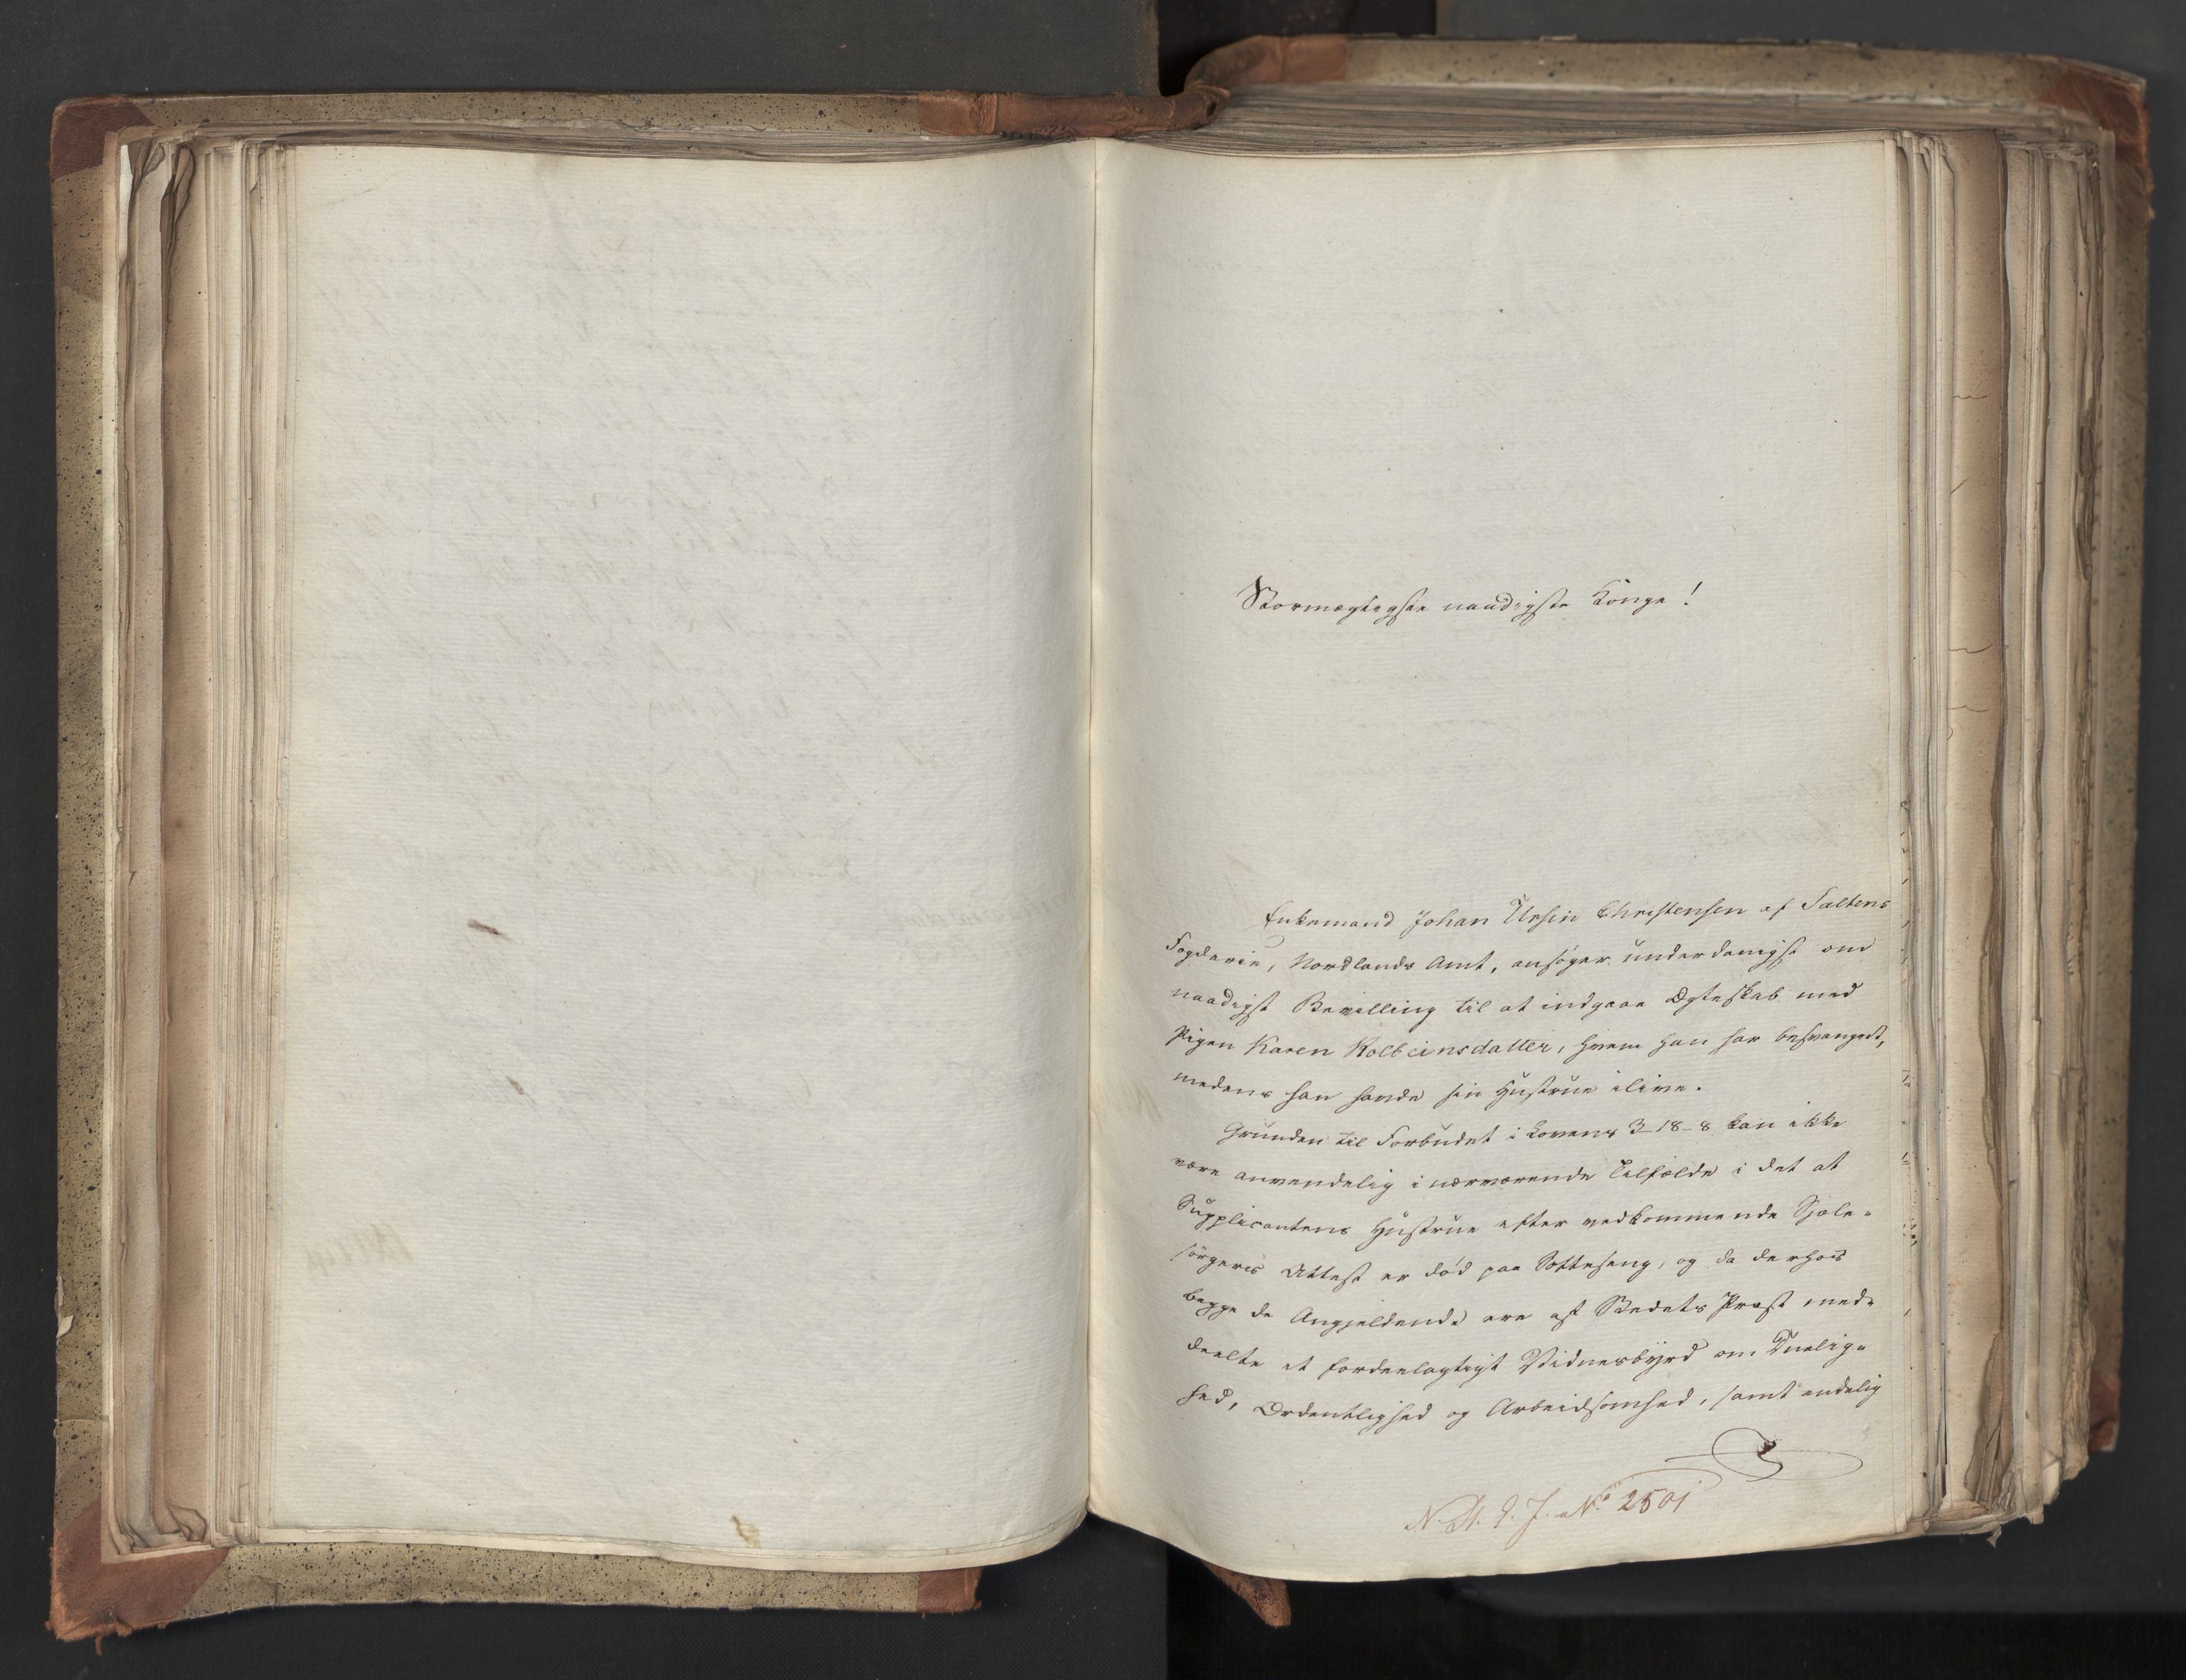 Stormægtigste naadigste Konge!
Enkemand Johan Ursin Christensen af Saltens
Fogderie, Nordlands Amt, ansøger underdanigst om
naadigst Bevilling til at indgaae Ægteskab med
Pigen Karen Kolbeinsdatter, hvem han har besvangret,
medens han havde sin Hustrue ilive.
Grunden til Forbudet i Lovens 3-18-8 kan ikke
være anvendelig i nærværende Tilfælde i det at
Supplicantens Hustrue efter vedkommende Sjæle-
sørgeres Attest er død paa Sotteseng, og da derhos
begge de Angjeldende ere af Stedets Præst med-
deelte et fordeelagtigt Vidnesbyrd om Duelig-
hed, Ordentlighed og Arbeidsomhed, samt endelig
No 2501